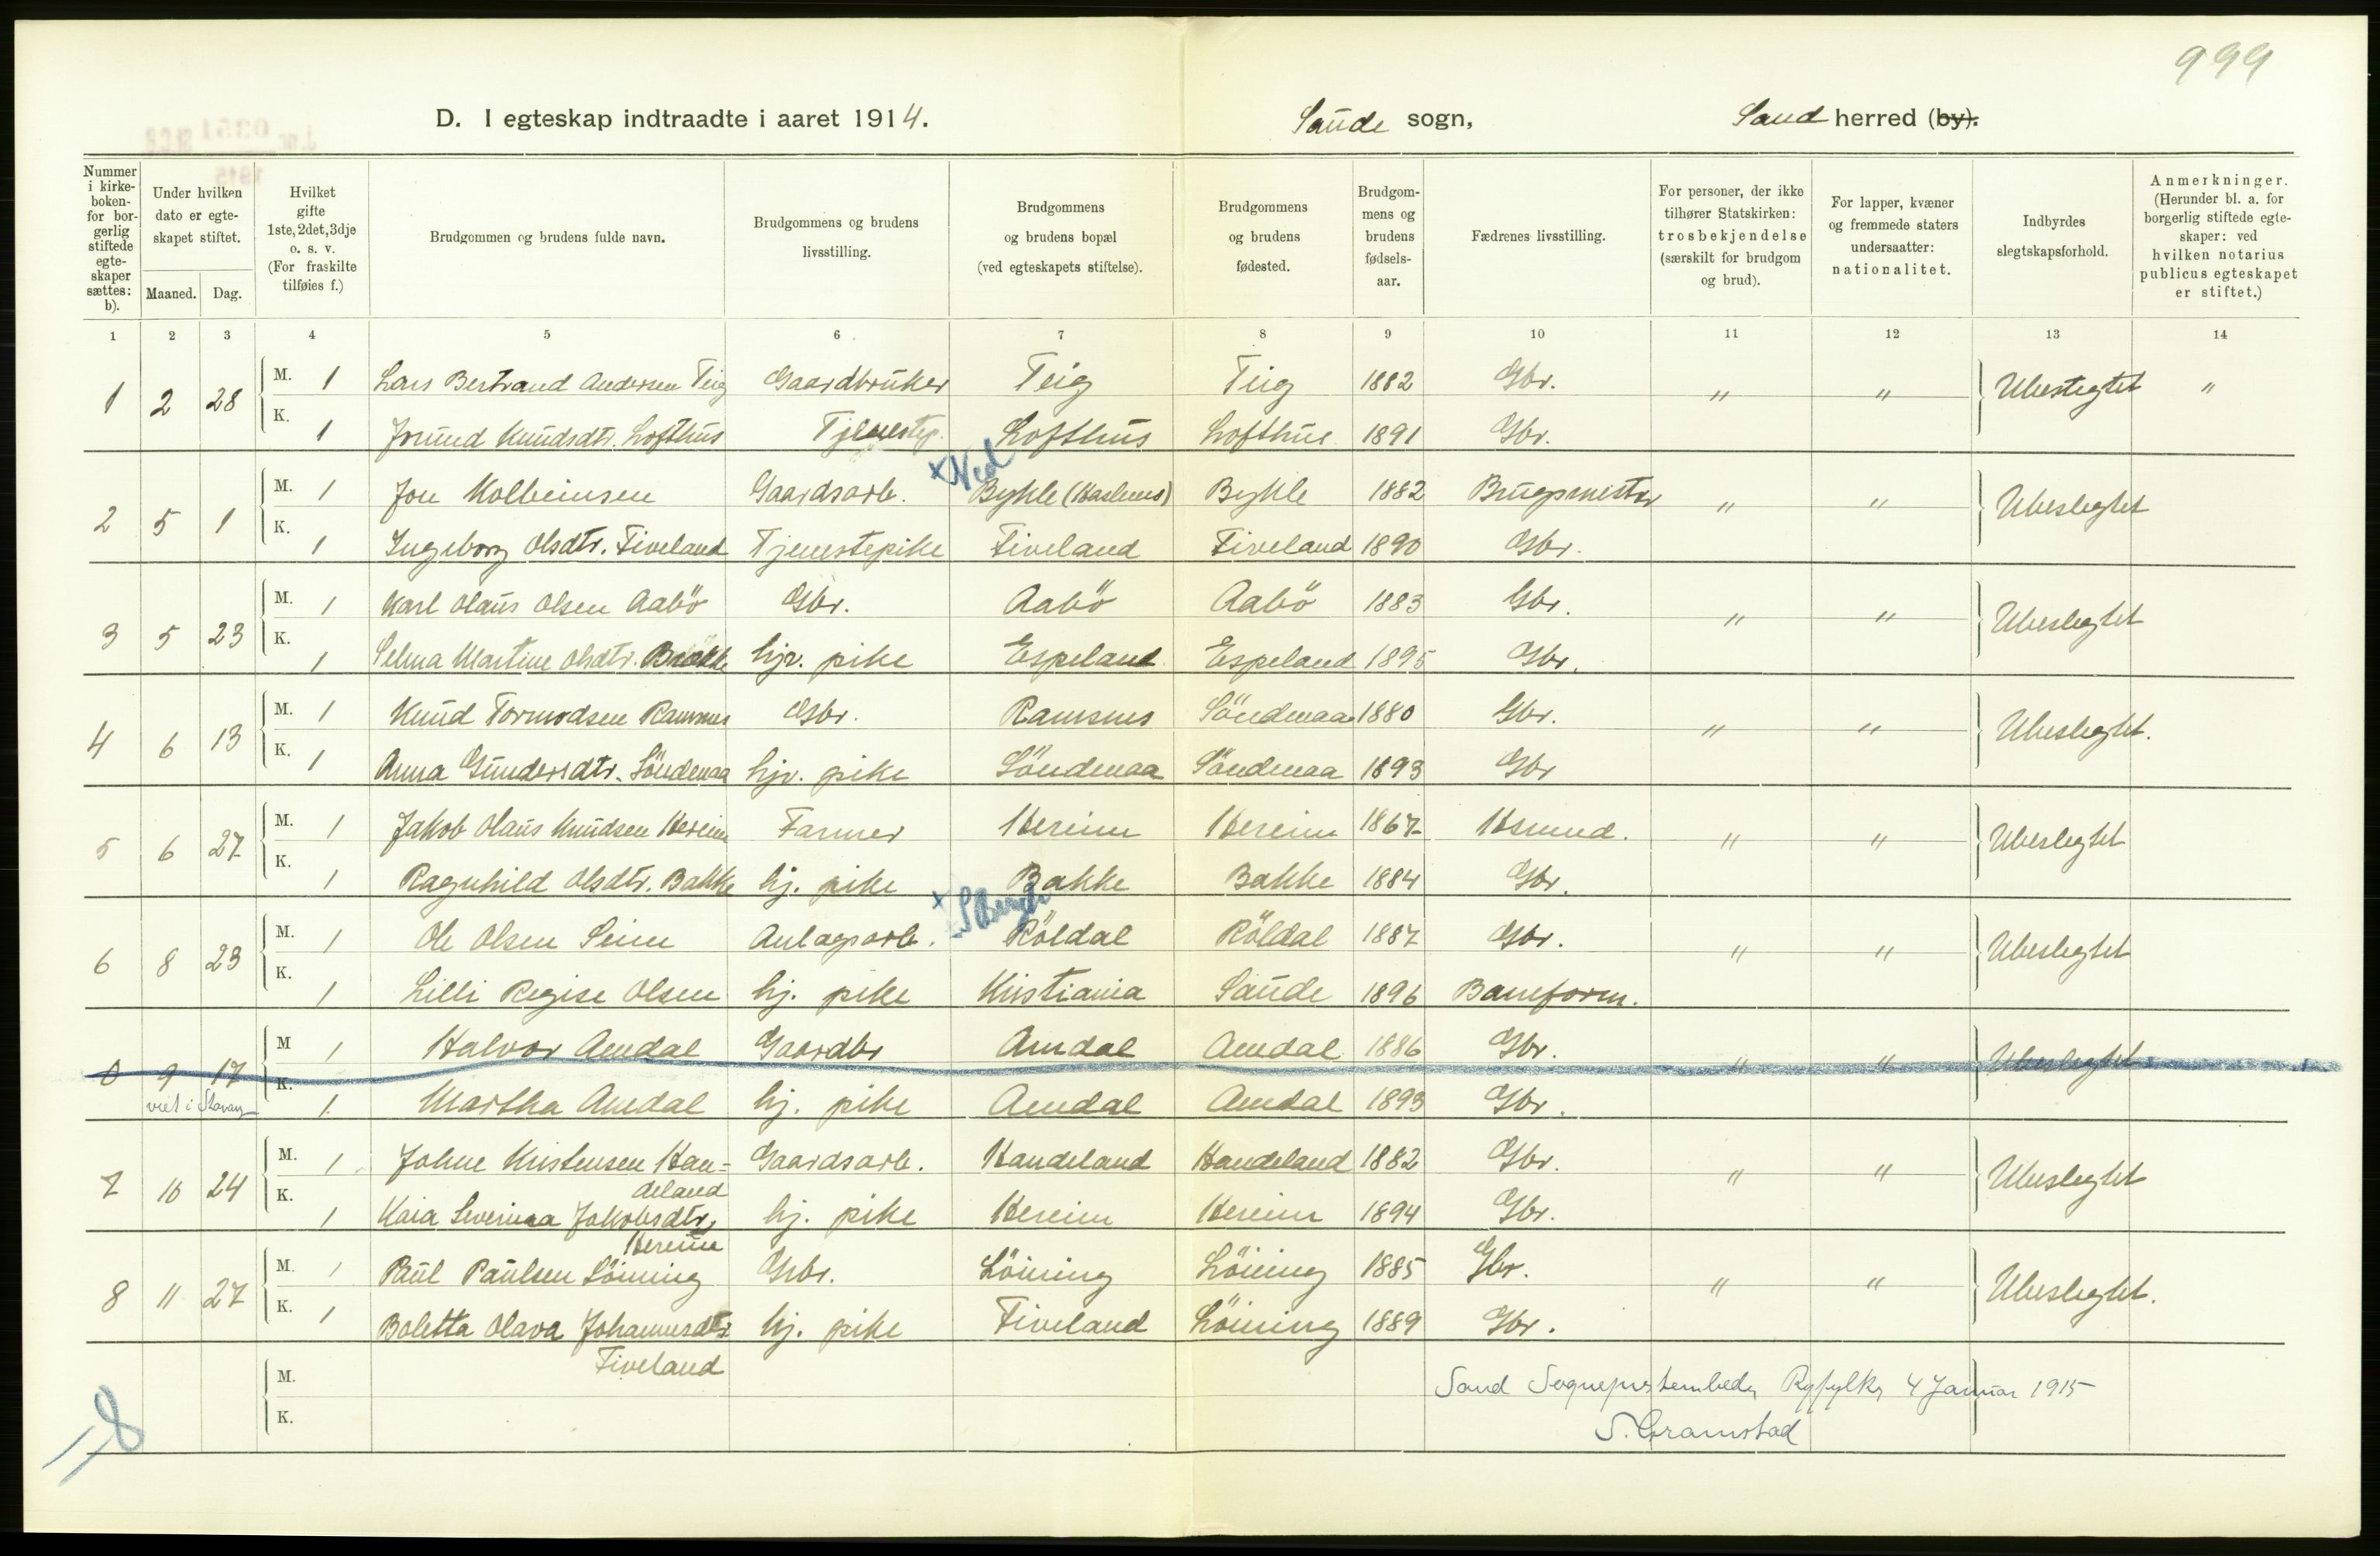 999
D. I egteskap indtraadte i aaret 1914. Saude sogn, Sand herred (by).
Nummer i kirke-boken- for bor-gerlig stiftede egte-skaper sættes: b).
Under hvilken dato er egte-skapet stiftet.
Maaned. Dag.
Hvilket gifte 1ste, 2det, 3dje o. s. v. (For fraskilte tilføies f.)
Brudgommen og brudens fulde navn.
Brudgommens og brudens livsstilling.
Brudgommens og brudens bopæl (ved egteskapets stiftelse).
Brudgommens og brudens fødested.
Brudgom-mens og brudens fødsels-aar.
Fædrenes livsstilling.
For personer, der ikke tilhører Statskirken: trosbekjendelse (særskilt for brudgom og brud).
For lapper, kvæner og fremmede staters undersaatter: nationalitet.
Indbyrdes slegtskapsforhold.
Anmerkninger. (Herunder bl. a. for borgerlig stiftede egte-skaper: ved hvilken notarius publicus egteskapet er stiftet.)
1 2 3 4 5 6 7 8 9 10 11 12 13 14
1 2 28 M. 1 Lars Bertrand Andersen Teig Gaardbruker Teig Teig 1882 Gbr. " " Ubeslegtet "
K. 1 Jorund Knudsdtr. Lofthus Tjenestep. Lofthus Lofthus 1891 Gbr.
2 5 1 M. 1 Jon Kolbeinsen Gaardsarb. x Bykle Bykle 1882 " " Ubeslegtet
K. 1 Ingeborg Olsdtr. Fiveland Tjenestepike Fiveland Fiveland 1890 Gbr.
3 5 23 M. 1 Karl Olaus Olsen Aabö Gbr. Aabö Aabö 1883 Gbr. " " Ubeslegtet
K. 1 Selma Martine Olsdtr. hjv. pike Espeland Espeland 1895 Gbr.
4 6 13 M. 1 Knud Tormodsen Ramsnes Gbr. Ramsnes Söndenaa 1880 Gbr. " " Ubeslegtet.
K. 1 Anna Gundersdtr. Söndenaa hjv. pike Söndenaa Söndenaa 1893 Gbr
5 6 27 M. 1 Jakob Olaus Knudsen Hereim Farmer Hereim Hereim 1867 Hsmand. " " Ubeslegtet
K. 1 Ragnhild Olsdtr. Bakke hj. pike Bakke Bakke 1884 Gbr.
6 8 23 M. 1 Ole Olsen Seim Anlagsarb. x Röldal Röldal 1887 Gbr. " " Ubeslegtet
K. 1 Lilli Regise Olsen hj. pike Kristiania Saude 1896 Baneform.
0 9 17 M 1 Halvor Amdal Gaardbr Amdal Amdal 1886 Gbr. " " Ubeslegtet
viet i Stavang
K. 1 Martha Amdal hj. pike Amdal Amdal 1893 Gbr.
7 10 24 M. 1 Johne Kristensen Han= Gaardsarb. Handeland Handeland 1882 Gbr. " " Ubeslegtet
deland
K. 1 Kaia Severinea Jakobsdtr. hj. pike Hereim Hereim 1894 Gbr.
Hereim
8 11 27 M. 1 Paul Paulsen Löining Gbr. Löining Löining 1885 Gbr. " " Ubeslegtet.
K. 1 Boletta Olava Johannesdtr. hj. pike Fiveland Löining 1889 Gbr.
Fiveland
M.
K.
Sand Sogneprestembede, Ryfylke, 4 Januar 1915
S. Gramstad
1-8